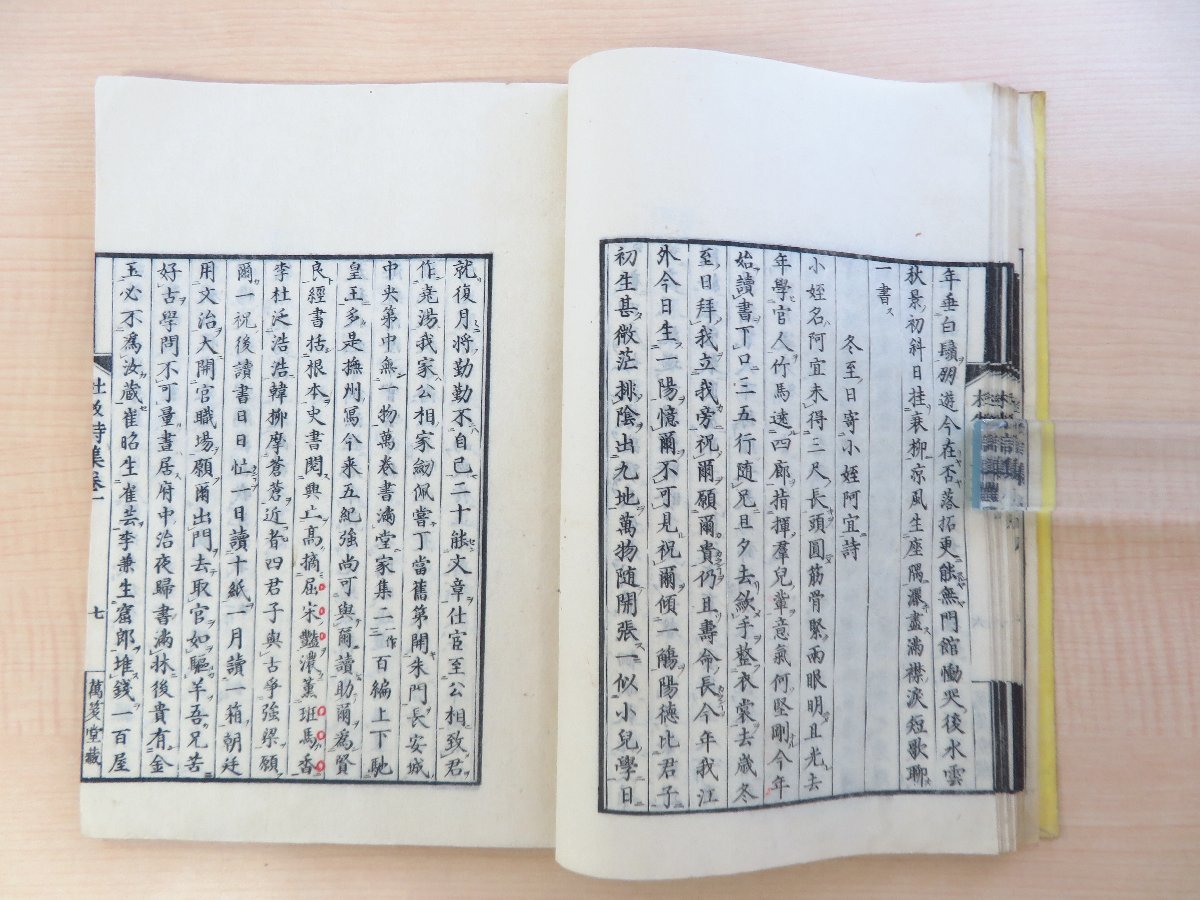 年垂白鬚朋遊今在否落拓更能無門館慟哭後水雲
秋景初斜日挂衰柳凉風生座隅灑盡滿襟淚短歌聊
一書
冬至日寄小姪阿宜詩
小姪名阿宜未得三尺長頭圓筋骨緊兩眼明且光去
年學官人竹馬遶四廊指揮羣兒輩意氣何堅剛今年
始讀書下口三五行随兄且夕去歛手整衣裳去歳冬
至日拜我立我旁祝爾願爾貴仍且壽命長今年我江
外今日生一陽憶爾不可見祝爾傾一觴陽德比君子
初生甚微茫排陰出九地萬物随開張一似小兒學日
就復月將勤勤不自已二十能文章仕宦至公相致君
作堯湯我家公相家劒佩嘗丁當舊第開朱門長安城
中央第中無一物萬卷書滿堂家集二作三百編上下馳
皇王多是撫州寫今来五紀強尚可與爾讀助爾爲賢
良經書括根本史書閲興亡高摘屈宋豔濃薫班馬香
李杜泛浩浩韓柳摩蒼蒼近者四君子與古爭強梁願
爾一祝後讀書日日忙一日讀十紙一月讀一箱朝廷
用文治大開官職場願爾出門去取官如驅羊吾兄苦
好古學問不可量晝居府中治夜歸書滿牀後貴有金
玉必不爲汝藏崔昭生崔芸李兼生窟郎堆錢一百屋
杜牧詩集卷一
七
萬笈堂藏